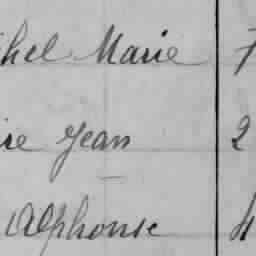 hel Marie 7
ire Jean 2
Alphonse 4